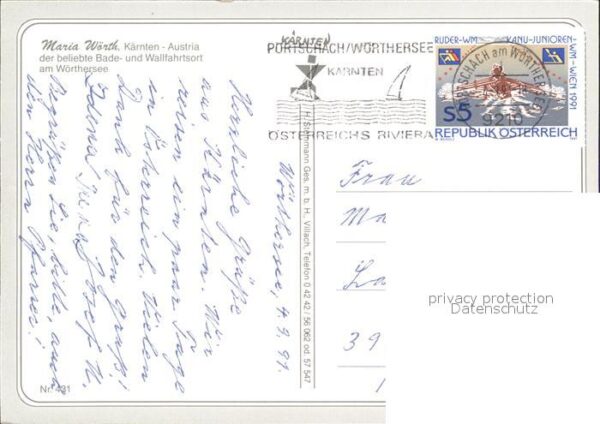 Maria Wörth, Kärnten - Austria
der beliebte Bade- und Wallfahrtsort
am Wörthersee
KÄRNTEN
PÖRTSCHACH/WÖRTHERSEE
KÄRNTEN
ÖSTERREICHS RIVIERA
RUDER-WM KANU-JUNIOREN-WM-WIEN 1991
PÖRTSCHACH am WÖRTHERSEE
9210
S5
REPUBLIK ÖSTERREICH
Wörthersee, 4.9.91
Herzliche Grüße
aus Kärnten. Wir
reisen ein paar Tage
in Österreich. Vielen
Dank für den Gruß!
Josef H.
Begrüßen Sie, bitte, auch
den Herrn Pfarrer!
H. Schimann Ges. m. b. H. Villach, Telefon 0 42 42 / 56 062 od. 57 547
Frau
Ma
La
39
1
privacy protection
Datenschutz
Nr. 431